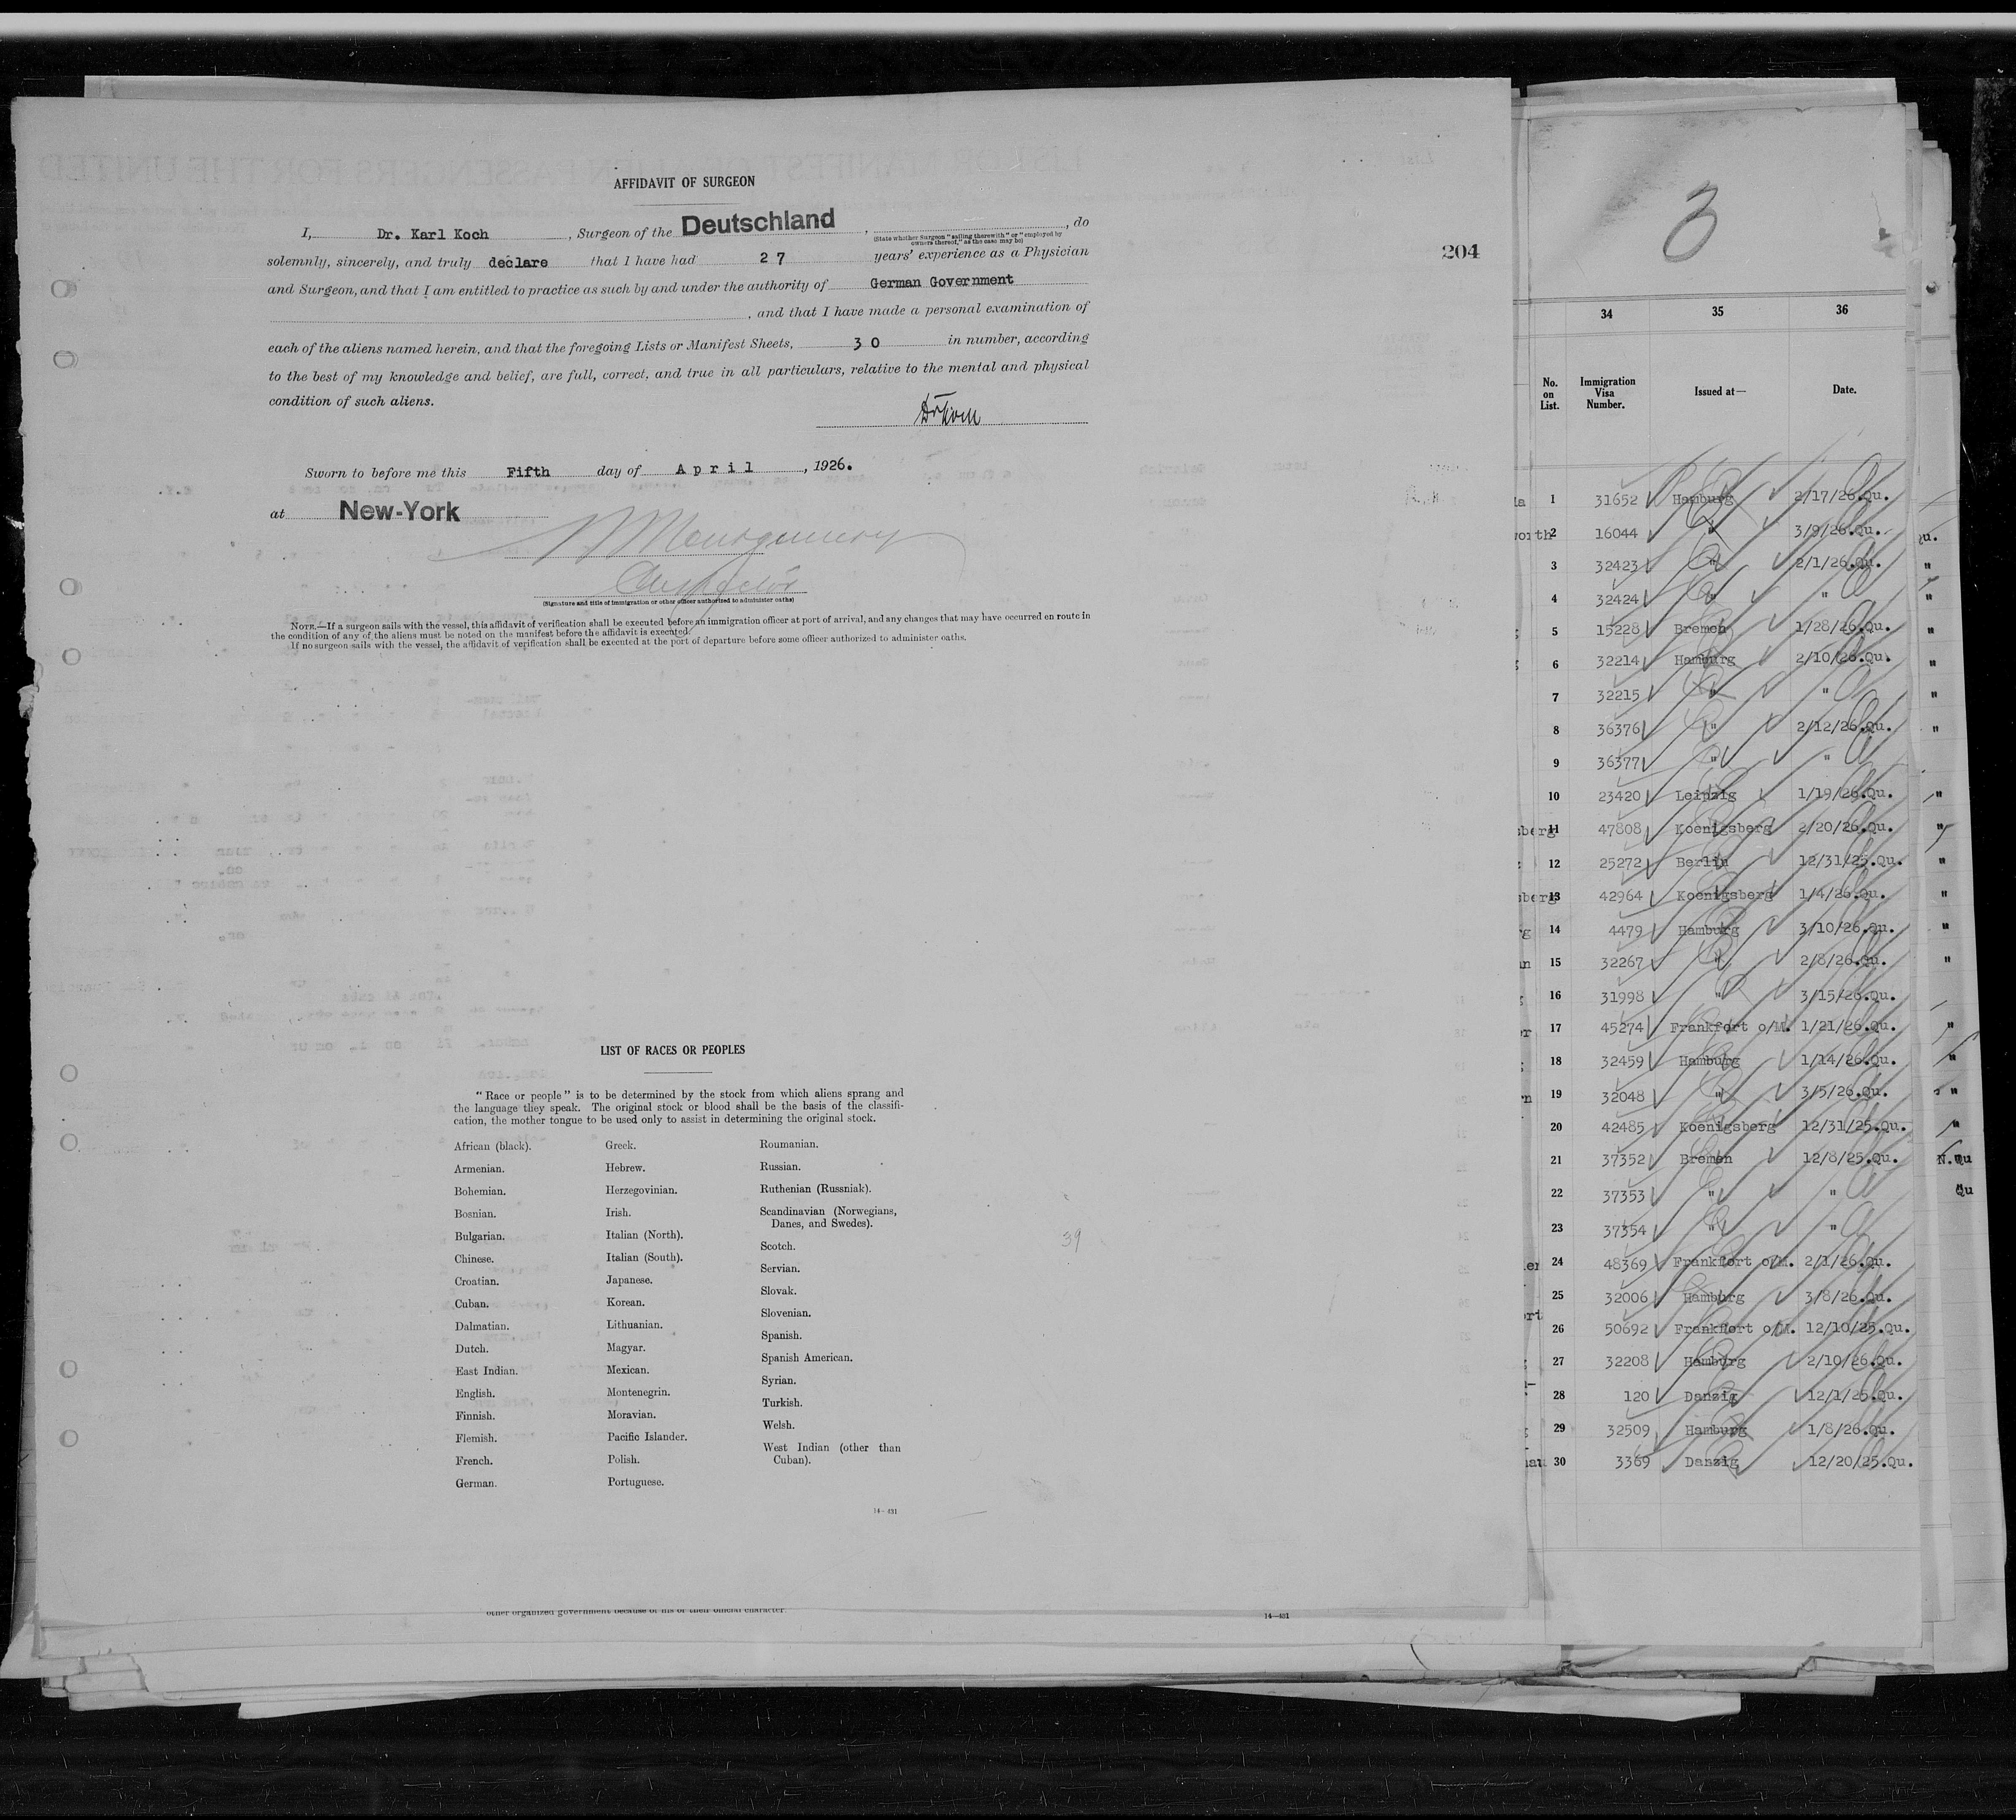 AFFIDAVIT OF SURGEON
I, Dr. Karl Koch, Surgeon of the Deutschland, , do
(State whether Surgeon "sailing therewith" or "employed by
owners thereof," as the case may be)
solemnly, sincerely, and truly declare that I have had 27 years' experience as a Physician
and Surgeon, and that I am entitled to practice as such by and under the authority of German Government
, and that I have made a personal examination of
each of the aliens named herein, and that the foregoing Lists or Manifest Sheets, 30 in number, according
to the best of my knowledge and belief, are full, correct, and true in all particulars, relative to the mental and physical
condition of such aliens.
Sworn to before me this Fifth day of April, 1926.
at New-York
Montgomery
Inspector
(Signature and title of immigration or other officer authorized to administer oaths)
NOTE.—If a surgeon sails with the vessel, this affidavit of verification shall be executed before an immigration officer at port of arrival, and any changes that may have occurred en route in
the condition of any of the aliens must be noted on the manifest before the affidavit is executed.
If no surgeon sails with the vessel, the affidavit of verification shall be executed at the port of departure before some officer authorized to administer oaths.
LIST OF RACES OR PEOPLES
"Race or people" is to be determined by the stock from which aliens sprang and
the language they speak. The original stock or blood shall be the basis of the classifi-
cation, the mother tongue to be used only to assist in determining the original stock.
African (black).
Armenian.
Bohemian.
Bosnian.
Bulgarian.
Chinese.
Croatian.
Cuban.
Dalmatian.
Dutch.
East Indian.
English.
Finnish.
Flemish.
French.
German.
Greek.
Hebrew.
Herzegovinian.
Irish.
Italian (North).
Italian (South).
Japanese.
Korean.
Lithuanian.
Magyar.
Mexican.
Montenegrin.
Moravian.
Pacific Islander.
Polish.
Portuguese.
Roumanian.
Russian.
Ruthenian (Russniak).
Scandinavian (Norwegians,
Danes, and Swedes).
Scotch.
Servian.
Slovak.
Slovenian.
Spanish.
Spanish American.
Syrian.
Turkish.
Welsh.
West Indian (other than
Cuban).
14-431
39
204
other organized government because of his or their official character.
14-431
3
34 35 36
No. on List. Immigration Visa Number. Issued at— Date.
1 31652 Hamburg 2/17/26.Qu.
2 16044 " 3/9/26.Qu.
3 32423 " 2/1/26.Qu.
4 32424 " "
5 15228 Bremen 1/28/26.Qu.
6 32214 Hamburg 2/10/26.Qu.
7 32215 " "
8 36376 " 2/12/26.Qu.
9 36377 " "
10 23420 Leipzig 1/19/26.Qu.
11 47808 Koenigsberg 2/20/26.Qu.
12 25272 Berlin 12/31/25.Qu.
13 42964 Koenigsberg 1/4/26.Qu.
14 4479 Hamburg 3/10/26.Qu.
15 32267 " 2/8/26.Qu.
16 31998 " 3/15/26.Qu.
17 45274 Frankfort o/M. 1/21/26.Qu.
18 32459 Hamburg 1/14/26.Qu.
19 32048 " 3/5/26.Qu.
20 42485 Koenigsberg 12/31/25.Qu.
21 37352 Bremen 12/8/25.Qu.
22 37353 " "
23 37354 " "
24 48369 Frankfort o/M. 2/1/26.Qu.
25 32006 Hamburg 3/8/26.Qu.
26 50692 Frankfort o/M. 12/10/25.Qu.
27 32208 Hamburg 2/10/26.Qu.
28 120 Danzig 12/1/25.Qu.
29 32509 Hamburg 1/8/26.Qu.
30 3369 Danzig 12/20/25.Qu.
N.Qu
Qu